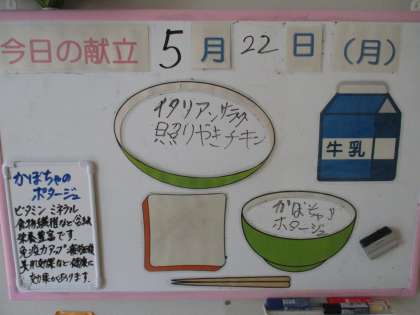 今日の献立 5月22日(月)
イタリアンサラダ
照りやきチキン
牛乳
かぼちゃの
ポタージュ
かぼちゃの
ポタージュ
ビタミン ミネラル
食物繊維など含み
栄養豊富です
免疫力アップ
美肌効果など健康に
効果があります。